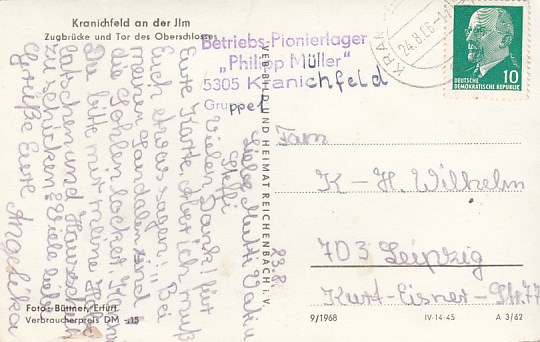 Kranichfeld an der Jlm
Zugbrücke und Tor des Oberschlosses
Betriebs-Pionierlager
„Philipp Müller"
5305 Kranichfeld
Gruppe 1
KRAN
24.8.68
DEUTSCHE
DEMOKRATISCHE REPUBLIK
10
VEB BILD UND HEIMAT REICHENBACH i. V.
23.8.
Liebe Mutti, Vati u.
Steffi
Vielen Dank! für
Eure Karte. Aber ich muß
Euch etwas sagen!: Bei
meinen Sandalen sind
die Sohlen locker.
Du bitte mir meine
latschen und Hausschuh
zu schicken? Viele liebe
Grüße Eure Angelika
Fam.
K-H. Wilhelm
703 Leipzig
Kurt-Eisner-Str. 77
Foto: Büttner, Erfurt
Verbraucherpreis DM -,15
9/1968
IV-14-45
A 3/62